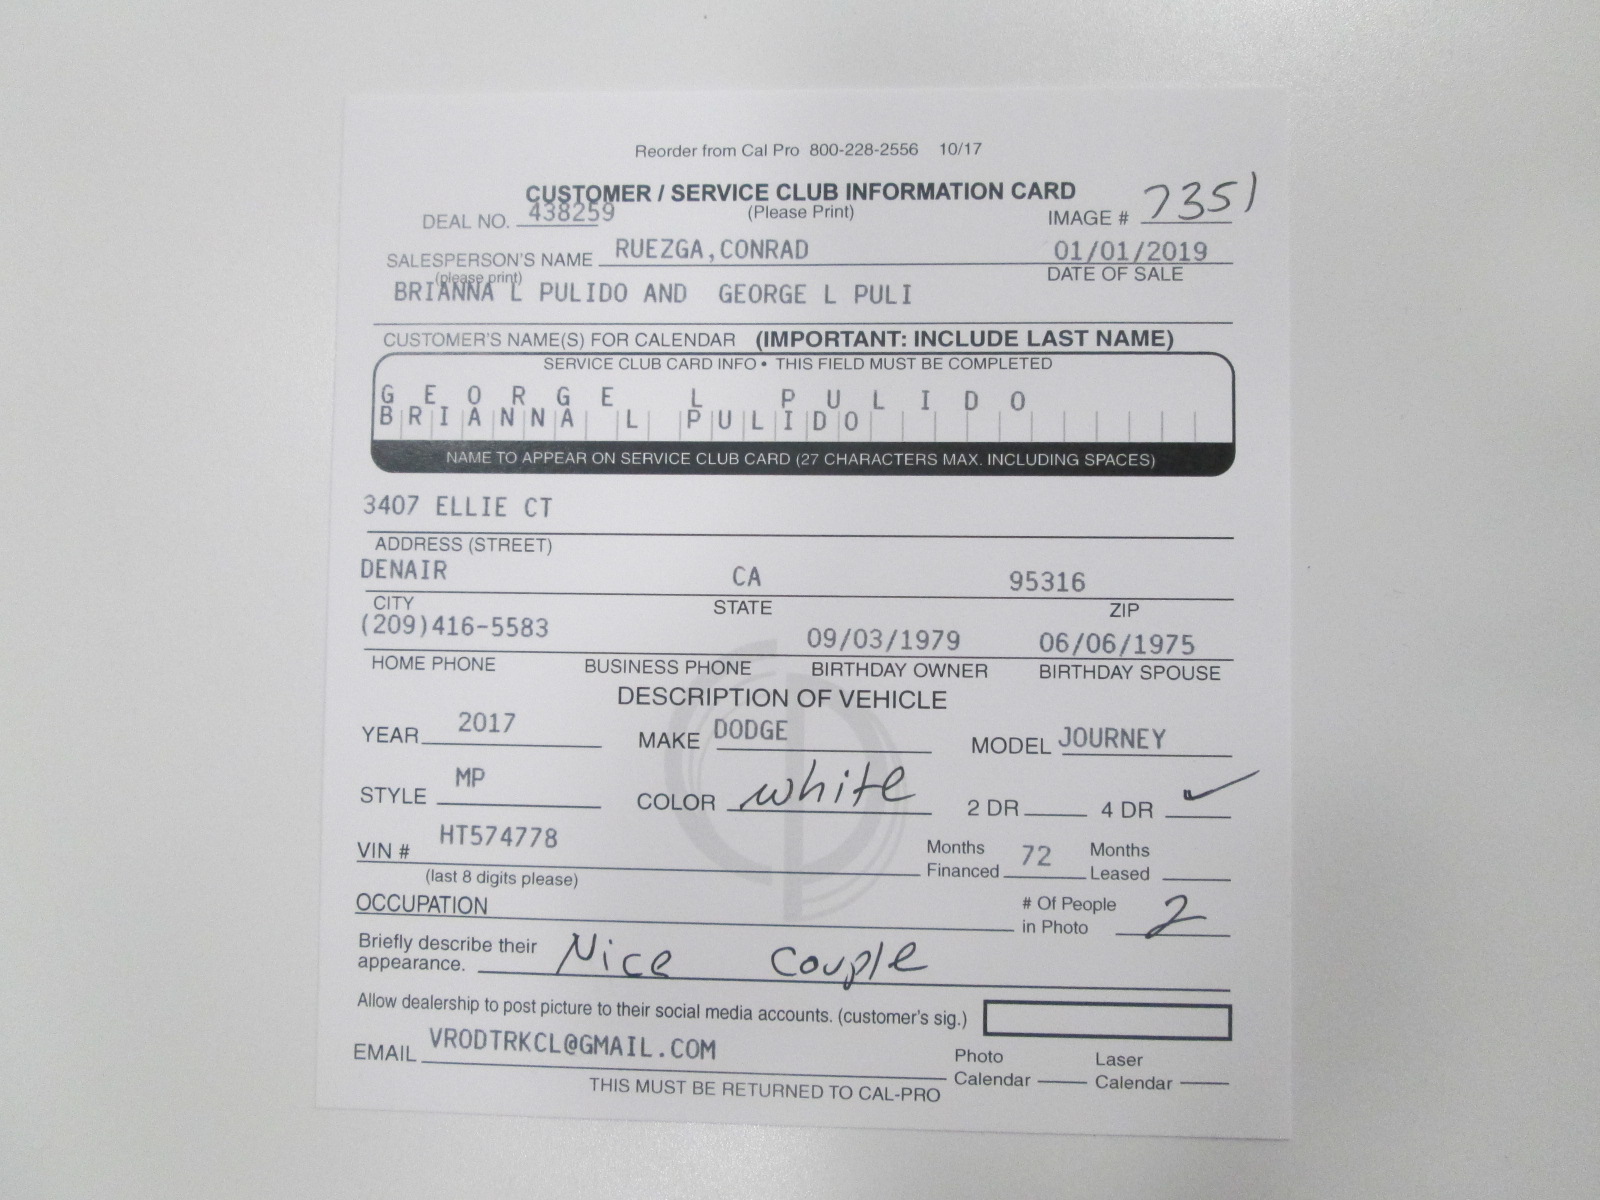 Reorder from Cal Pro 800-228-2556 10/17
CUSTOMER / SERVICE CLUB INFORMATION CARD
(Please Print)
DEAL NO. 438259
IMAGE # 7351
SALESPERSON'S NAME RUEZGA,CONRAD 01/01/2019
(please print) DATE OF SALE
BRIANNA L PULIDO AND GEORGE L PULI
CUSTOMER'S NAME(S) FOR CALENDAR (IMPORTANT: INCLUDE LAST NAME)
SERVICE CLUB CARD INFO • THIS FIELD MUST BE COMPLETED
GEORGE L PULIDO
BRIANNA L PULIDO
NAME TO APPEAR ON SERVICE CLUB CARD (27 CHARACTERS MAX. INCLUDING SPACES)
3407 ELLIE CT
ADDRESS (STREET)
DENAIR CA 95316
CITY STATE ZIP
(209)416-5583 09/03/1979 06/06/1975
HOME PHONE BUSINESS PHONE BIRTHDAY OWNER BIRTHDAY SPOUSE
DESCRIPTION OF VEHICLE
YEAR 2017 MAKE DODGE MODEL JOURNEY
STYLE MP COLOR white 2 DR 4 DR ✓
VIN # HT574778 Months Financed 72 Months Leased
(last 8 digits please)
OCCUPATION # Of People in Photo 2
Briefly describe their appearance. Nice Couple
Allow dealership to post picture to their social media accounts. (customer's sig.)
EMAIL VRODTRKCL@GMAIL.COM Photo Calendar Laser Calendar
THIS MUST BE RETURNED TO CAL-PRO